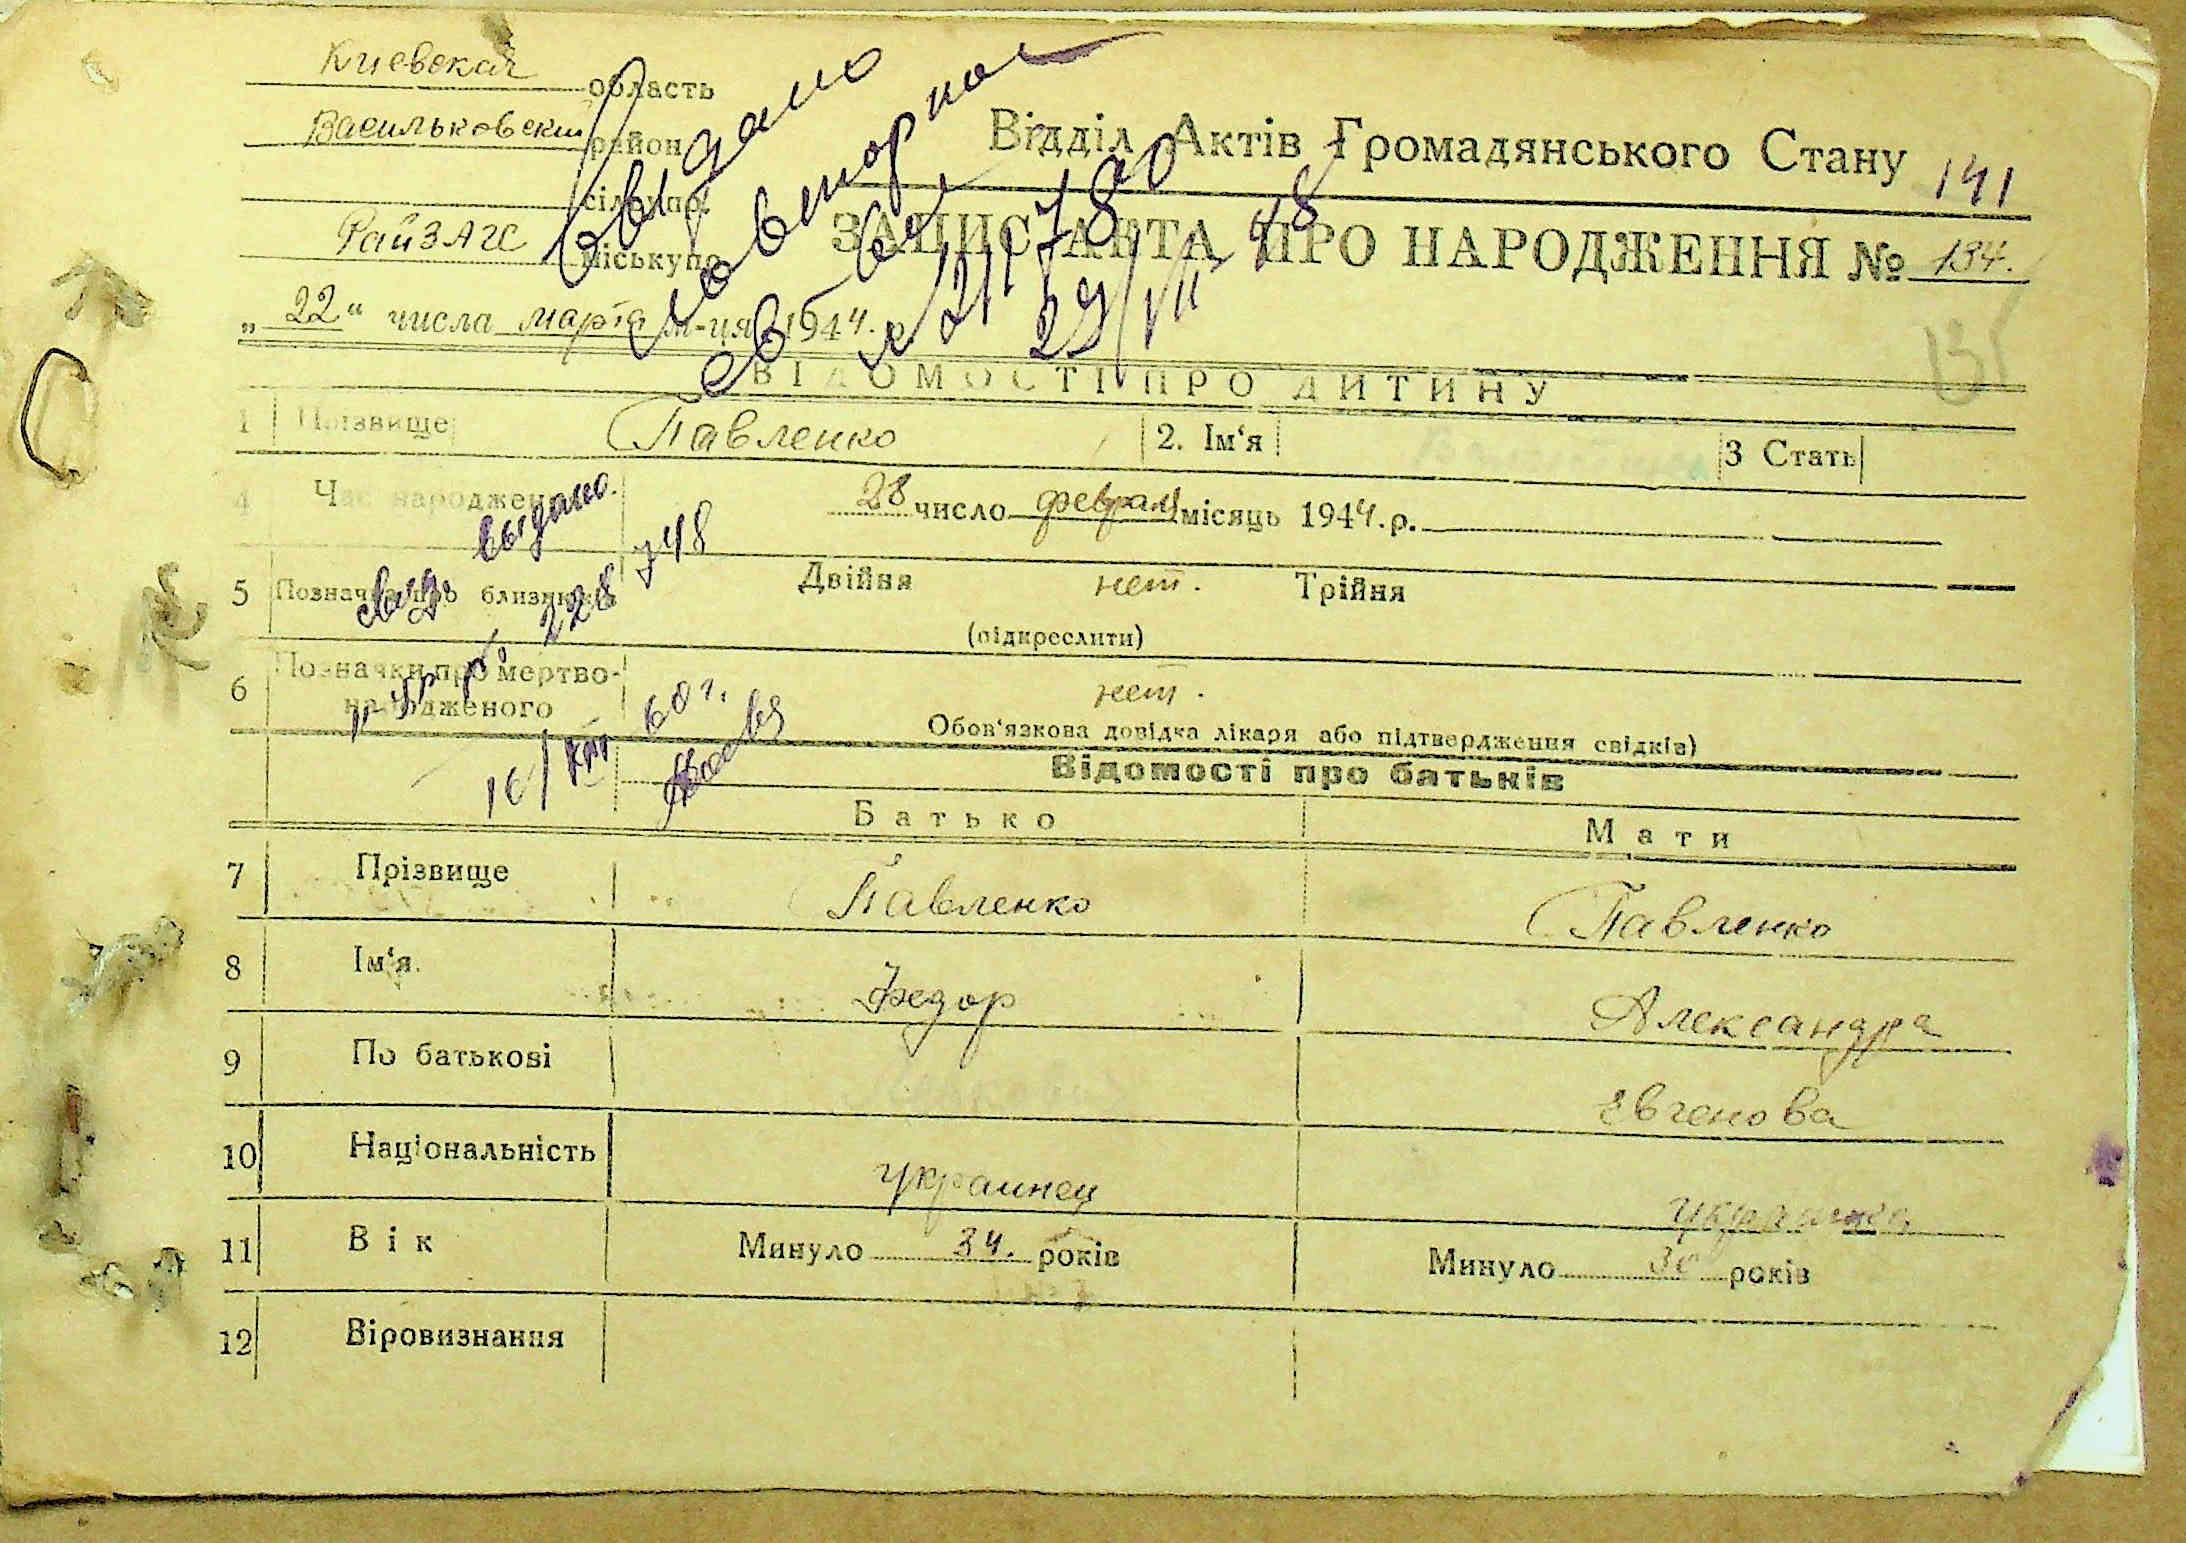 Киевская область
Васильковский район
сільупр.
РайЗАГС міськупр.
Відділ Актів Громадянського Стану 141
ЗАПИС АКТА ПРО НАРОДЖЕННЯ № 134.
„22“ числа марта м-ця 1944. р.
Выдано
повторное
св-во
29/VII-48
ВІДОМОСТІ ПРО ДИТИНУ
1 Прізвище Павленко 2. Ім‘я 3 Стать
4 Час народження 28 число февраля місяць 1944. р.
выдано
5 Позначка про близнюків Двійня нет. Трійня
(підкреслити)
6 Позначки про мертво-
народженого нет.
60 г.
Обов‘язкова довідка лікаря або підтвердження свідків)
Відомості про батьків
Батько Мати
7 Прізвище Павленко Павленко
8 Ім‘я. Федор Александра
9 По батькові Евгенова
10 Національність украинец украинка
11 Вік Минуло 34. років Минуло 30 років
12 Віровизнання